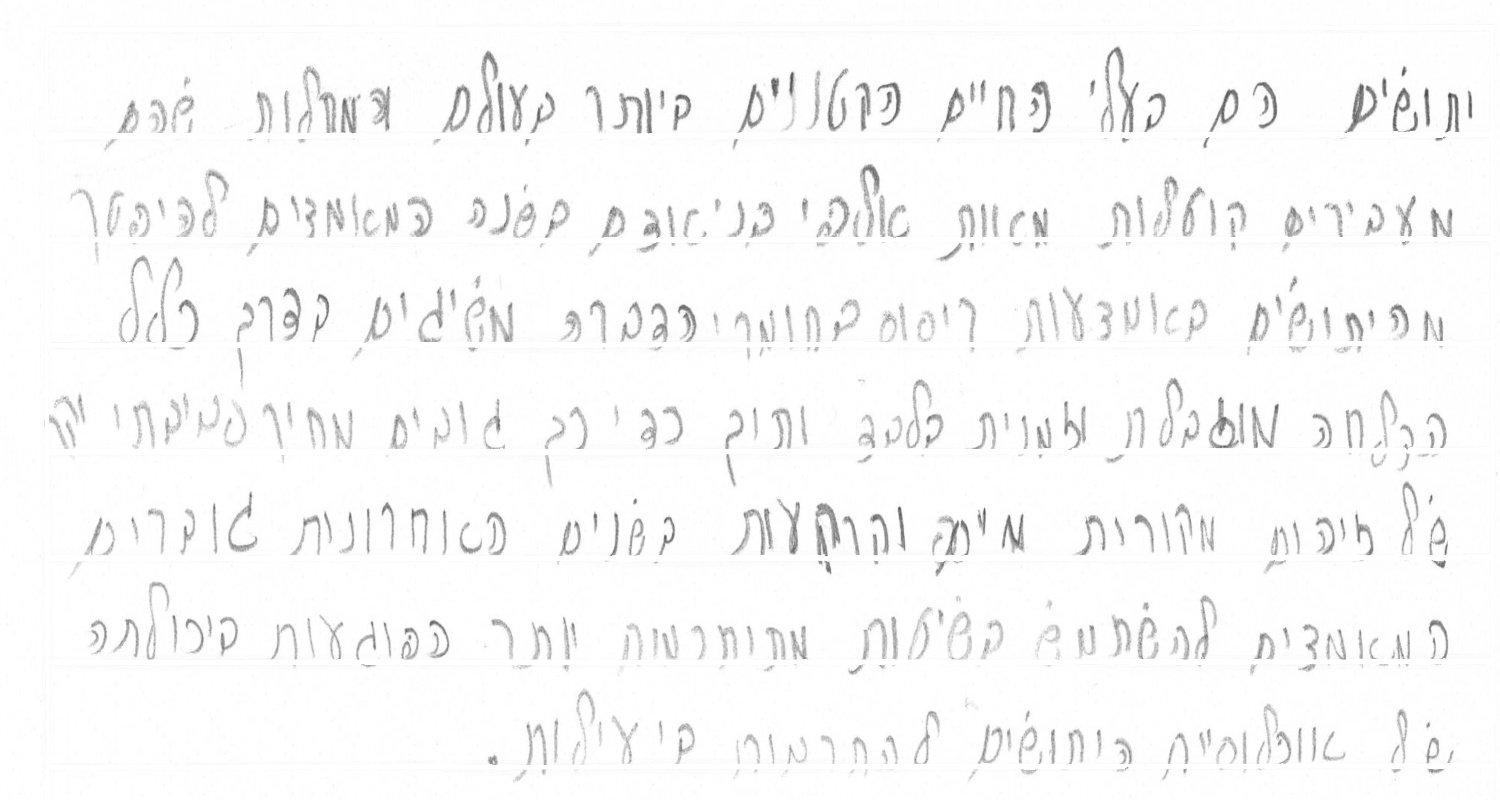 יתושים הם בעלי החיים הקטנוניים ביותר בעולם המחלות שהם
מעבירים קוטלות מאות אלפי בני אודם בשנה המאמצים להיפטר
מהיתושים באמצעות ריסוס בחומרי הדברה משיגים בדרך כלל
הצלחה מוגבלת וזמנית בלבד ותוך כדי כך גובים מחיר סביבתי
של זיהום מקורות מיים והרקעות בשנים האחרונות גוברים
המאמצים להשתמש בשיטות מתוחכמות יותר הפוגעות ביכולתה
של אוכלוסיית היתושים להתרבות ביעילות.